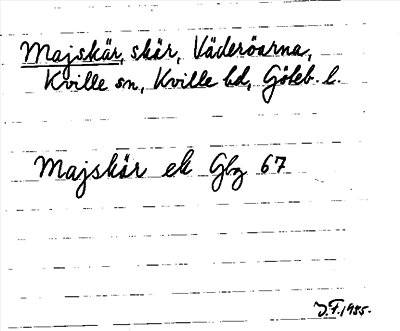 Majskär, skär, Väderöarna,
Kville sn, Kville hd, Göteb. l.
Majskär ek Gbg 67
J.F. 1985.